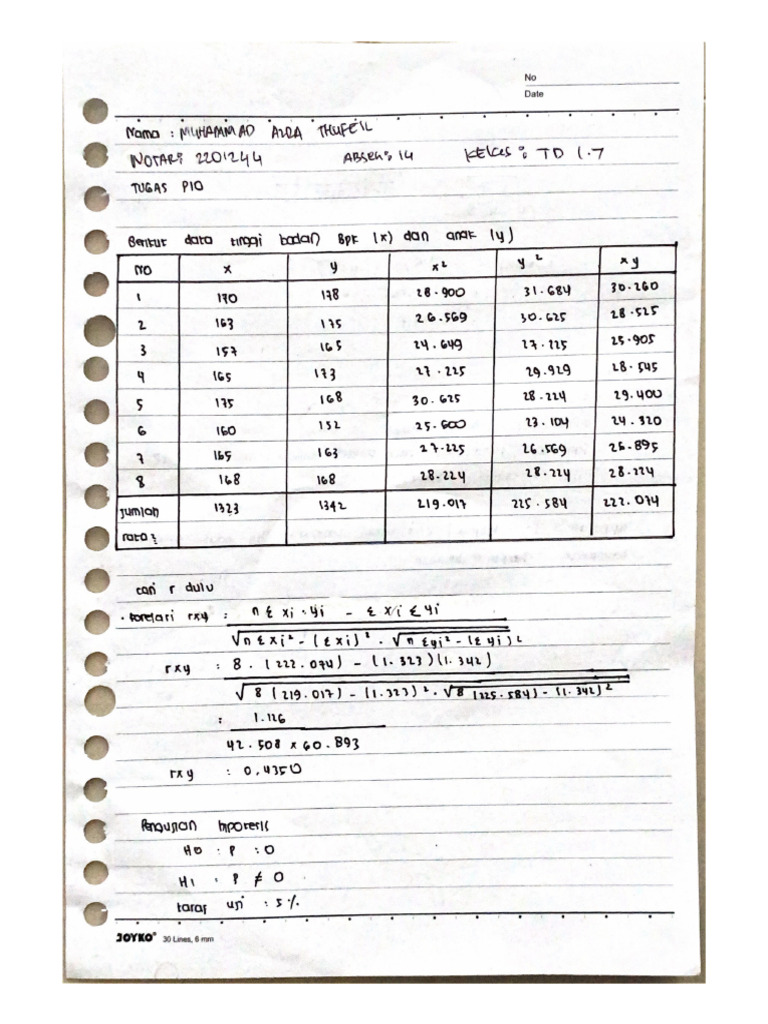 No
Date
Nama : MUHAMMAD AZRA THUFEIL
NOTAR : 2201244 ABSEN : 14 Kelas : TD 1.7
TUGAS P10
Berikut data tinggi badan Bpk (x) dan anak (y)
NO x y x² y² xy
1 170 178 28.900 31.684 30.260
2 163 175 26.569 30.625 28.525
3 157 165 24.649 27.225 25.905
4 165 173 27.225 29.929 28.545
5 175 168 30.625 28.224 29.400
6 160 152 25.600 23.104 24.320
7 165 163 27.225 26.569 26.895
8 168 168 28.224 28.224 28.224
Jumlah 1323 1342 219.017 225.584 222.074
rata²
cari r dulu
• korelasi rxy : n Σ xi . yi - Σ xi Σ yi
√n Σ xi² - (Σ xi)² . √n Σ yi² - (Σ yi)²
rxy : 8 . (222.074) - (1.323)(1.342)
√8 (219.017) - (1.323)² . √8 (225.584) - (1.342)²
: 1.126
42.508 x 60.893
rxy : 0,4350
Pengujian hipotesis
H0 : ρ : 0
H1 : ρ ≠ 0
taraf uji : 5%
JOYKO® 30 Lines, 6 mm